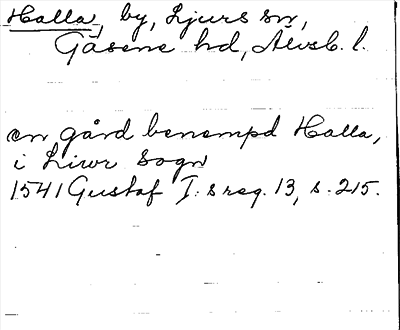 Halla, by, Ljurs sn,
Gäsene hd, Älvsb. l.
en gård benempd Halla,
i Liwr sogn
1541 Gustaf I:s reg. 13, s. 215.